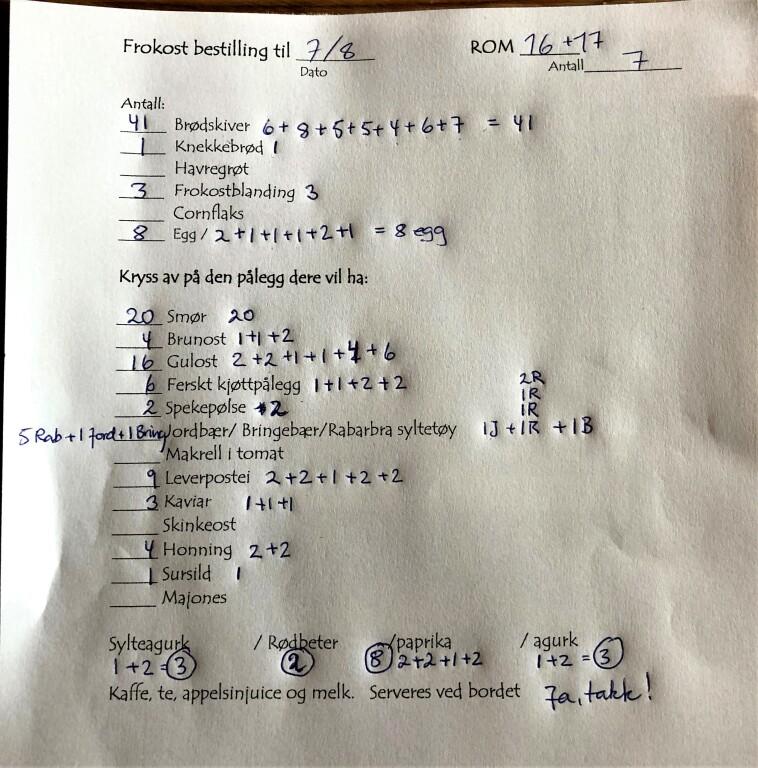 Frokost bestilling til 7/8 ROM 16+17
Dato Antall 7
Antall:
41 Brødskiver 6+8+5+5+4+6+7 = 41
1 Knekkebrød 1
Havregrøt
3 Frokostblanding 3
Cornflaks
8 Egg / 2+1+1+1+2+1 = 8 egg
Kryss av på den pålegg dere vil ha:
20 Smør 20
4 Brunost 1+1+2
16 Gulost 2+2+1+1+4+6
6 Ferskt kjøttpålegg 1+1+2+2
2R
1R
2 Spekepølse 2
1R
5 Rab + 1 Jord + 1 Bring Jordbær/ Bringebær/Rabarbra syltetøy 1J + 1R + 1B
Makrell i tomat
9 Leverpostei 2+2+1+2+2
3 Kaviar 1+1+1
Skinkeost
4 Honning 2+2
1 Sursild 1
Majones
Sylteagurk / Rødbeter /paprika / agurk
1+2=3 2 8 2+2+1+2 1+2=3
Kaffe, te, appelsinjuice og melk. Serveres ved bordet Ja, takk!